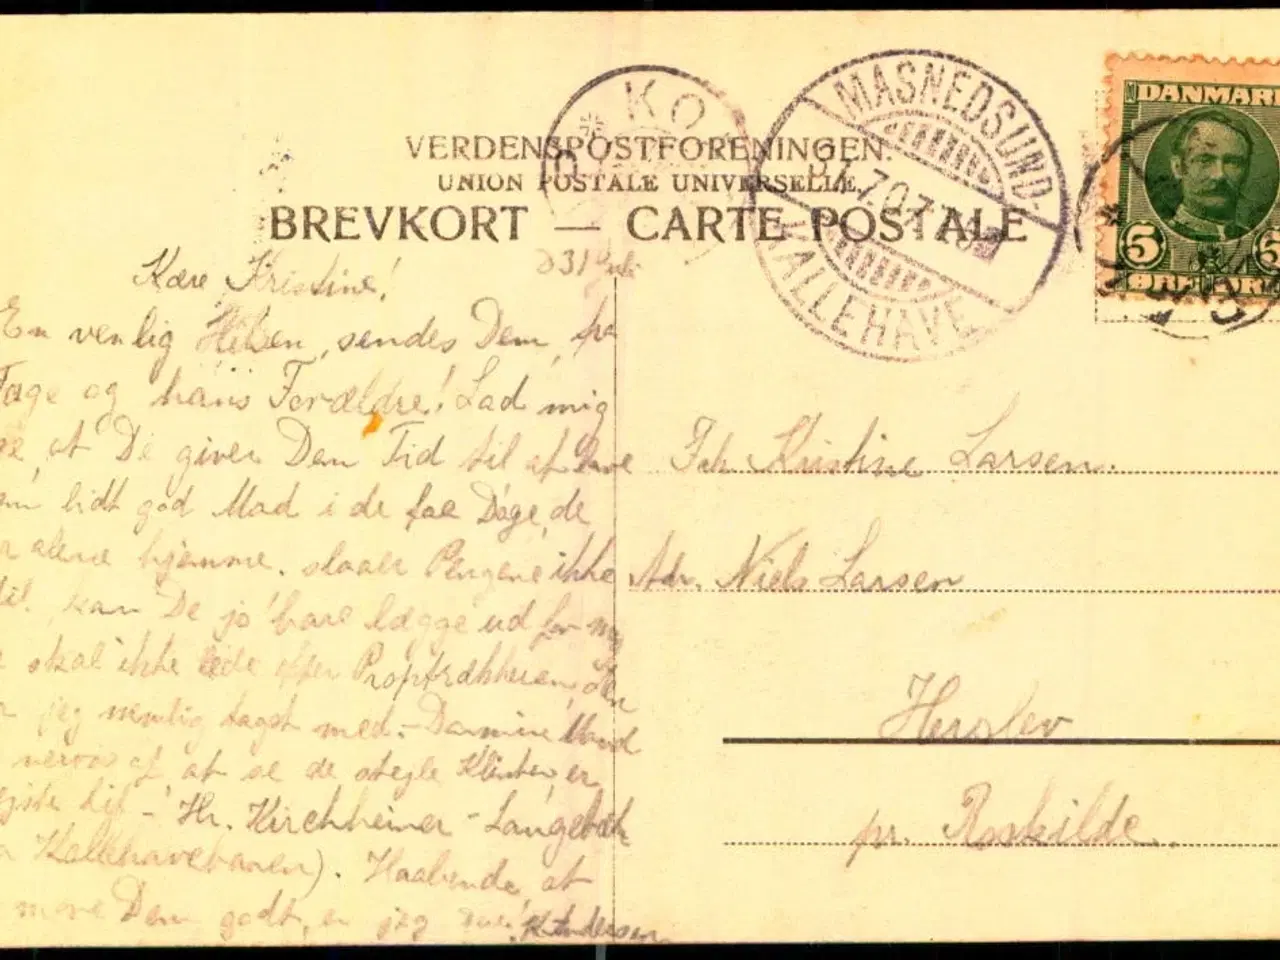 KO
MASNEDSUND-
31.7.07.
KALLEHAVE
DANMARK
5 5
ØRE ØRE
VERDENSPOSTFORENINGEN.
UNION POSTALE UNIVERSELLE.
BREVKORT — CARTE POSTALE
Kære Kristine!
En venlig Hilsen, sendes Dem, fra
Tage og hans Forældre! Lad mig
se, at De giver Dem Tid til at lave
lidt god Mad i de faa Dage, de
er alene hjemme. slaaer Pengene ikke
til, kan De jo bare lægge ud for mig
skal ikke lede efter Proptrækkeren, den
jeg nemlig taget med. - Da min Mand
nervøs af at se de stejle Klinter, er
rejste til - Hr. Kirchheiner - Langebæk
Kallehavebanen). Haabende, at
more Dem godt, er jeg K. Andersen
Frk. Kristine Larsen.
Adr. Niels Larsen
Herslev
pr. Roskilde.